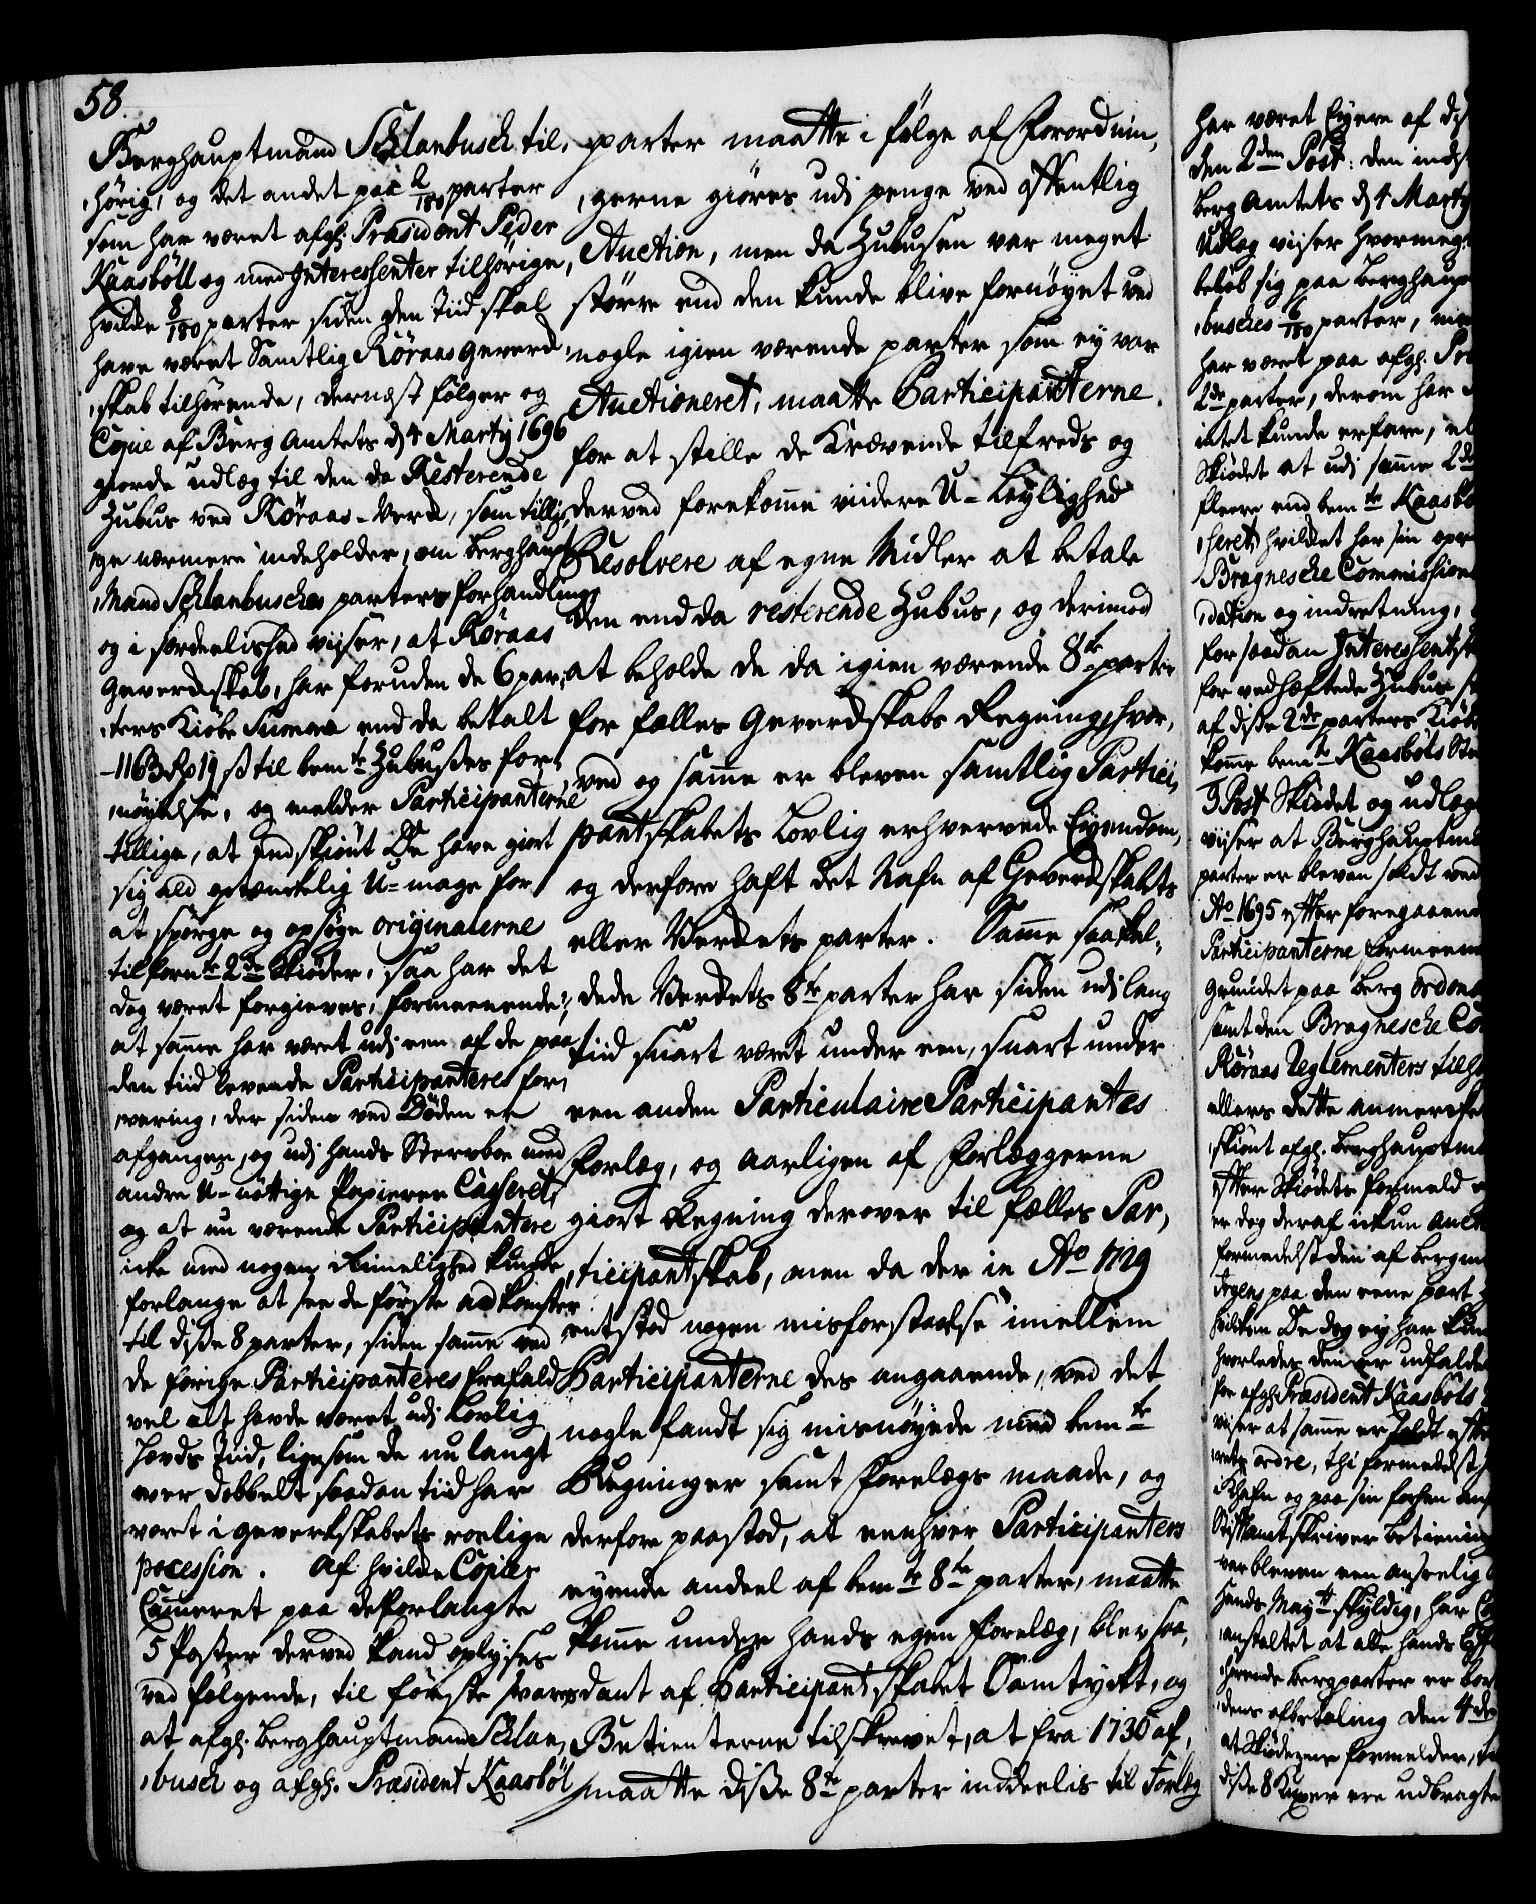 58.
Berghauptmand Schlanbusch til,
,hörig, og det andet paa 2/180 parter
som har været afg: Præsident Peder
Kaasböll og med Interessenter tilhörige,
hvilke 8/180 parter siden den Tiid skal
have været Samtlig Röraas Gewerck,
,skab tilhörende, dernæst fölger og
Copie af Berg Amtets d 4 Marty 1696
giorde udlæg til den da Resterende
Zubus ved Röraas-Verck, som tillig,
,ge nærmere indeholder, om Berghaupt,
,Mand Schlanbusches parters forhandling,
og i særdeelished viser, at Röraas
Gewerckskab, har foruden de 6 par,
,ters Kiöbe Summa endda betalt
-1163 Rd 19 ß til bemte Zubusses for,
,nöyelse, og melder Participanterne
tillige, at endskiönt De have giort
sig ald optænkelig U-mage for
at spörge og opsöge originalerne
til fornte 2de Skiöder, saa har det
dog været forgieves, formeenende,
at samme har været udj een af de paa
den tiid levende Participanteres for,
,varing, der siden ved Döden er
afgangen, og udj hands Sterboe med
andre U-nöttige Papierer Casseret,
og at nu værende Participantere
icke med nogen Rimelighed kunde
forlange at see de förste adkomster
til disse 8 parter, siden samme ved
de forige Participanteres frafald
vel alt havde været udj Lovlig
Hævds Tiid, ligesom de nu langt
over dobbelt saadan tiid har
været i Gewerckskabets roelige
possession. Af hvilke Copier
Cameret paa de forlangte
5 Poster derved kand oplyses
ved fölgende, til förste svares
at afg: Berghauptmand Schlan,
,busch og afg: Præsident Kaasböl
parter maatte i fölge af Forordnin,
,gerne giöres udj penge ved offentlig
Auction, men da Zubusen var meget
större end den kunde blive fornöyet ved
nogle igien værende parter som ey var
Auctioneret, maatte Participanterne
for at stille de Krævende tilfreds og
derved forekomme viidere U-Leylighed
Resolvere af egne Midler at betale
den endda resterende Zubus, og derimod
at beholde de da igien værende 8te parter
for fælles Gewerckskabs Regning, hvor,
,ved og samme er bleven samtlig Partici,
pantskabets Lovlig erhvervede Eyendom,
og derfore haft det Nafn af Gewerckskabets
eller Verckets parter. Samme saakal,
,dede Verckets 8te parter har siden udj lang
Tiid snart været under een, snart under
een anden Particulaire Participantes
Forlæg, og aarligen af Forlæggerne
giort Regning derover til fælles Par,
,ticipantskab, men da der in Ao 1729
entstod nogen misforstaaelse imellem
Participanterne des angaaende, ved det
nogle fandt sig misnöyede med bemte
Regninger samt forelægs maade, og
derfore paastod, at eenhver Participanters
eyende andeel af bemte 8te parter, maatte
komme under hands egen forelæg, blev saa,
,dant af Participantskabet Samtyckt, og
Betienterne tilskrevet, at fra 1730 af,
maatte disse 8te parter inddeelis til Forlæg
har været Eyere af diß
den 2den Post: den indß
Berg Amtets d 4 Marty
Udlæg viser hvormeg
belöb sig paa Berghaup
,busches 6/180 parter, me
har været paa afg: Pr
2de parter, derom har
intet kunde erfare, el
Skiödet at udj samme 2de
fleere end bemte Kaasb
,seret, hvilket har sin opr
Bragnesche Commission
,dation og indretning,
for saadan Interessentsk
for vedhæftede Zubus s
af disse 2de parters Kiöb
komme bemte Kaasböls Ste
3 Post Skiödet og udlæg
viser at Berghauptma
parter er bleven soldt ved
Ao 1695 efter foregaaend
Participanterne formeene
grundet paa Berg Ordona
samt den Bragnesche Co
Röraas Reglementers tilh
ellers dette anmercke
,skiönt afg: Berghauptma
efter Skiödets formeld
er dog deraf ickun anta
formedelst den af Bergm
paa den eene part
De dog ey har kun
hvorledes den er udfalde
for afg: Præsident Kaasböls
viser at samme er soldt efte
ordre, thi formedelst
og paa sin forhen
Stiftamtskriver betiening
var bleven een anseelig
Hands Mayts skyldig, har
,anstaltet at alle hands
,hörende bergparter er bor
,dens afbetaling den 4de
at Skiöderne formelder,
disse 8 Kuxer ere udbragte